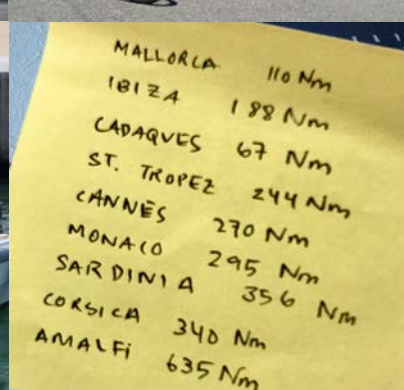 MALLORCA 110 Nm
IBIZA 188 Nm
CADAQUES 67 Nm
ST. TROPEZ 244 Nm
CANNES 270 Nm
MONACO 295 Nm
SARDINIA 356 Nm
CORSICA 340 Nm
AMALFi 635 Nm